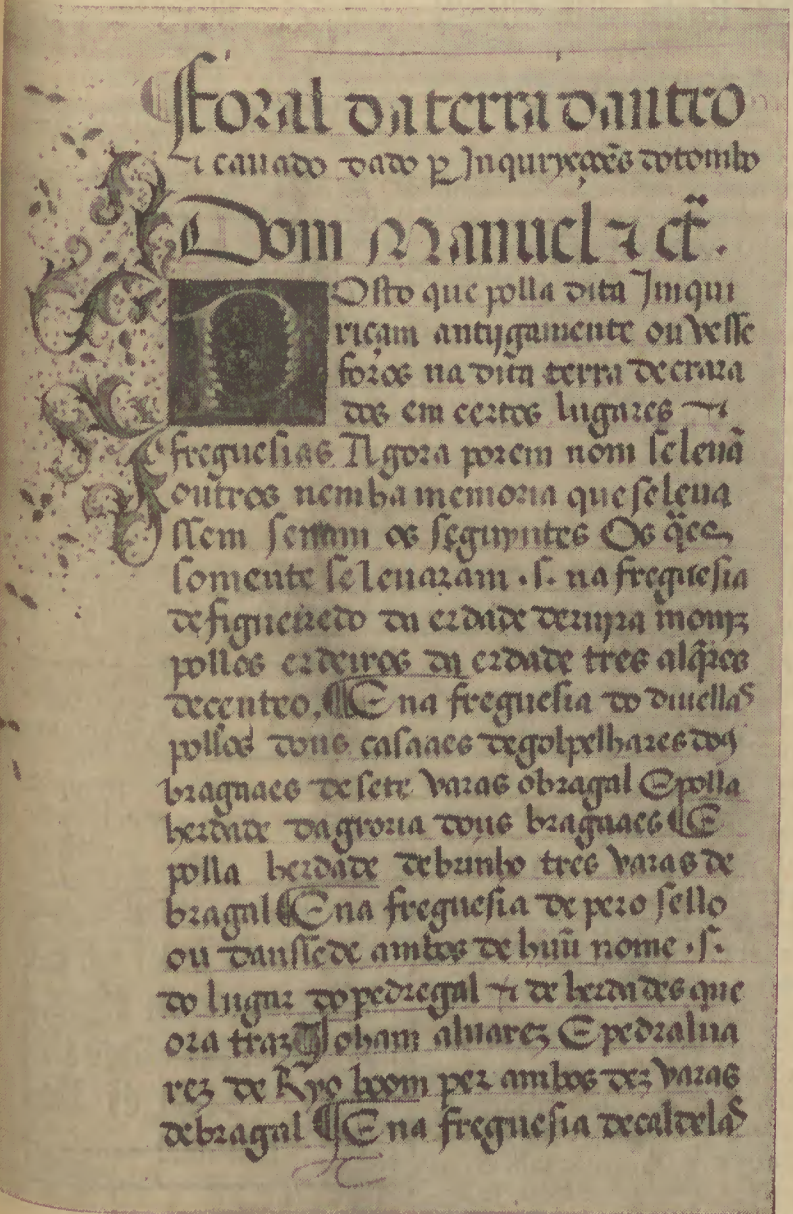 ¶ Foral da terra dantro
⁊ cauado dado per Inquiryções do tombo
Dom Manuel ⁊ cť.
POsto que polla dita Jmqui
riçam antijgamente ouvesse
foros na dita terra decrara
dos em certos lugares ⁊
freguesias Agora porem nom se leuã
outros nem ha memoria que se leua
ssem senam os seguyntes Os q̃ees
somente se leuaram .s. na freguesia
de figueiredo da erdade de moniz
pollos erdeiros da erdade tres alq̃res
de centeo. ¶ E na freguesia do diuellas
pollos dous casaaes de golpelhares dos
bragaaes de sete varas o bragal E polla
herdade dagroria dous bragaaes ¶ E
polla herdade de brunho tres varas de
bragal ¶ E na freguesia de pero sello
ou dansede ambos de huũ nome .s.
do lugar do pedregal ⁊ de herdades que
ora traz Joham aluarez E pedralua
rez de Ryo boom per ambos dez varas
de bragal ¶ E na freguesia de caldelas